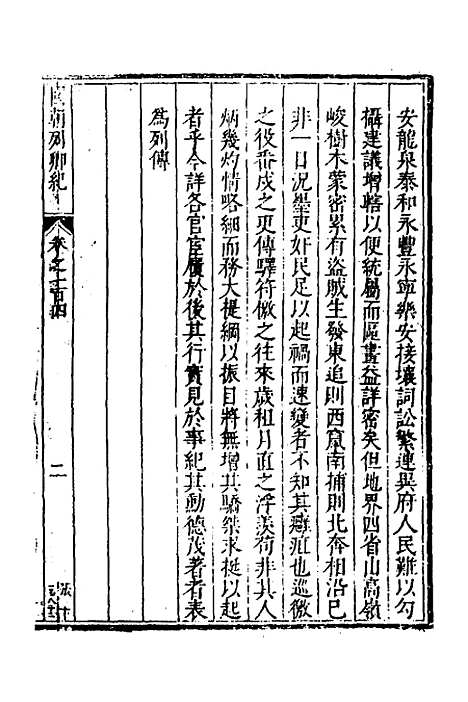 安龍泉泰和永豐永寧樂安接壤詞訟繁連吳府人民難以勾
攝建議增轄以便統屬而區畫益詳密矣但地界四省山高嶺
峻樹木蒙密累有盜賊生發東追則西竄南捕則北奔相沿已
非一日况樂吏奸民足以起禍而速變者不知其癖疽也巡徼
之役番戍之更傳驛符檄之往來歲租月直之浮羨苟非其人
炳幾灼情略細而務大提綱以振目將無增其驕桀求挺以起
者乎今詳各官宦履於後其行實見於事紀其勳德茂著者表
為列傳
國朝列卿紀
卷之一百四
二